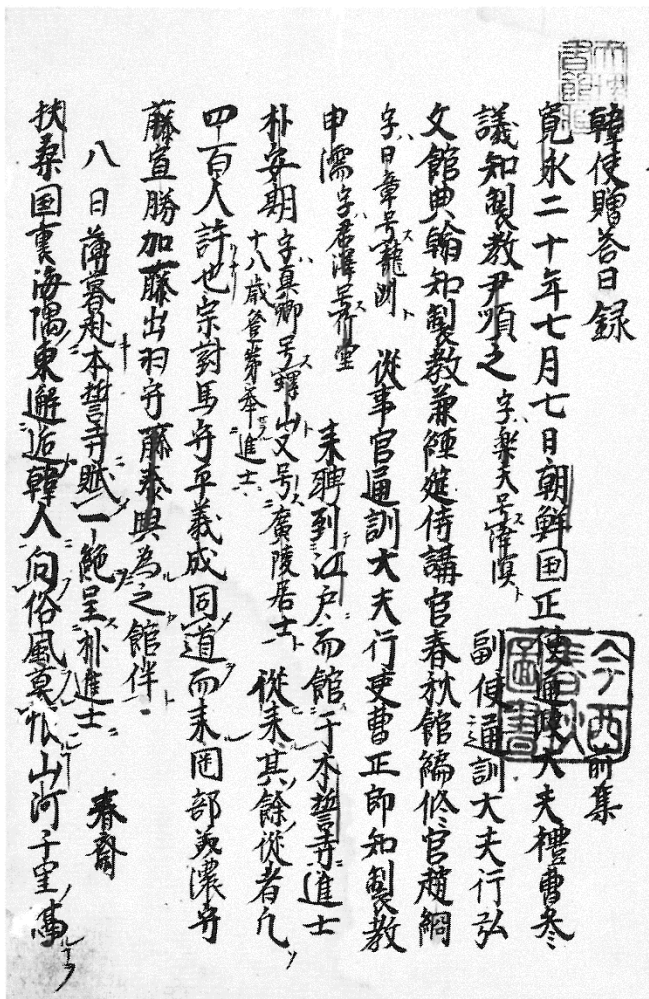 韓使贈荅日録
前集
寛永二十年七月七日朝鮮国正使通政大夫禮曹参
議知製教尹順之 字ハ樂天号ス涬溟ト 副使通訓大夫行弘
文館典翰知製教兼經筵侍講官春秋館編修官趙絅
字ハ日章号ス龍洲ト 從事官通訓大夫行吏曹正郎知製教
申濡 字ハ君澤号ス竹堂 来聘到江戸ニ而館于本誓寺ニ進士
朴安期 字ハ真卿号ス螺山ト又号ス廣陵居士ト 十八歳登第挙進士 從来其餘從者凡ソ
四百人許也宗對馬守平義成同道而来岡部美濃守
藤宣勝加藤出羽守藤泰興為之館伴
八日薄暮赴本誓寺賦一絶呈朴進士ニ
春齋
扶桒国裏海隅東邂逅韓人向俗風莫恨山河千里
今西春秋圖書